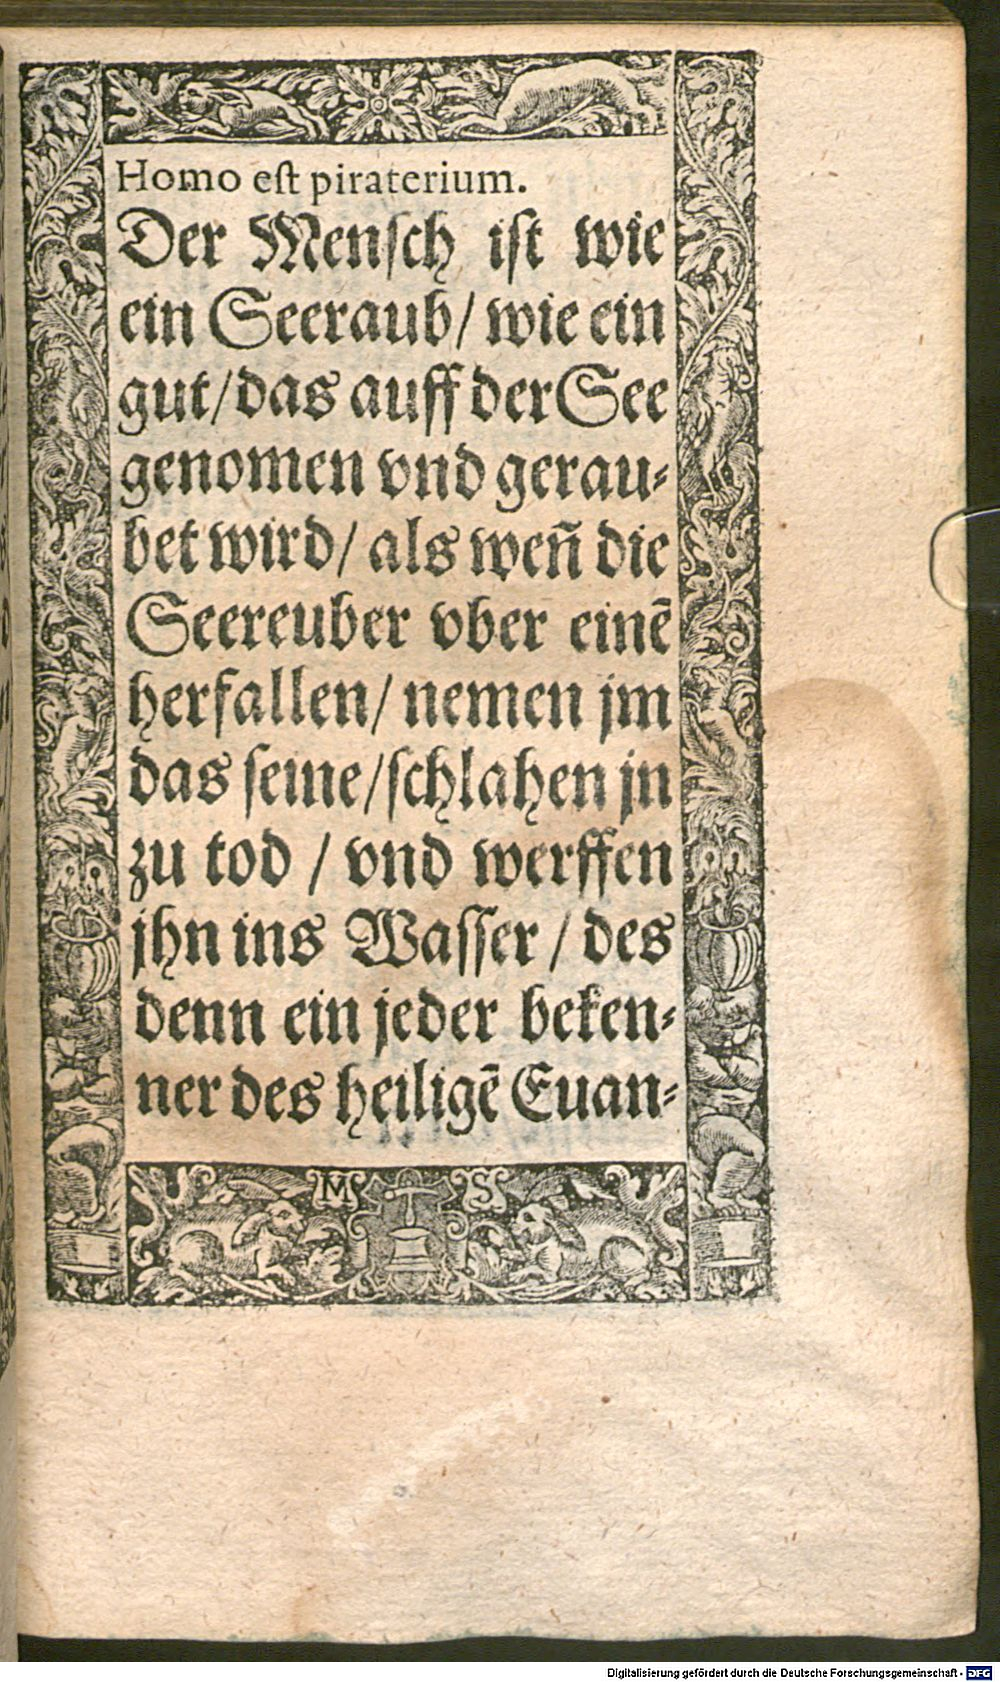 Homo est piraterium.
Der Mensch ist wie
ein Seeraub / wie ein
gut / das auff der See
genomen vnd gerau-
bet wird / als weñ die
Seereuber vber einē
herfallen / nemen jm
das seine / schlahen jn
zu tod / vnd werffen
jhn ins Wasser / des
denn ein jeder beken-
ner des heiligē Euan-
M S
Digitalisierung gefördert durch die Deutsche Forschungsgemeinschaft - DFG